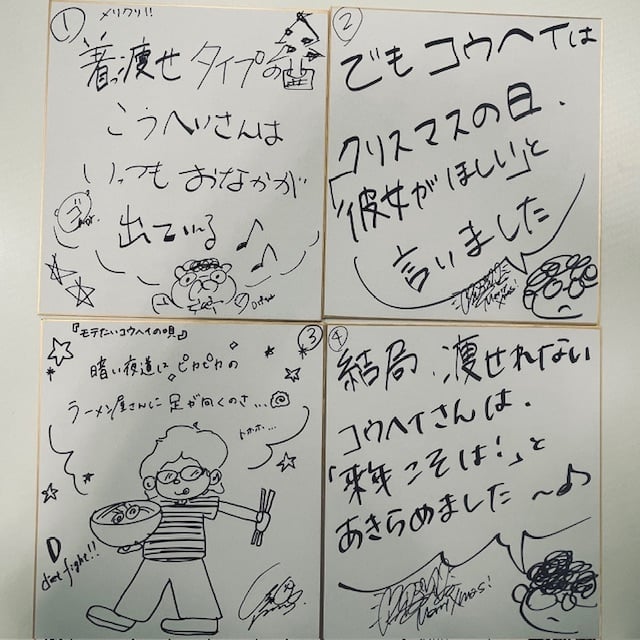 ①
メリクリ!!
着痩せタイプの
こうへいさんは
いっつもおなかが
出ている♪
②
でもコウヘイは
クリスマスの日、
「彼女がほしい」と
言いました
Merry Xmas!
③
『モテたいコウヘイの唄』
暗い夜道にピカピカの
ラーメン屋さんに足が向くのさ…
トホホ…
D
diet fight!!
④
結局、痩せれない
コウヘイさんは、
「来年こそは!」と
あきらめました〜♪
Merry Xmas!